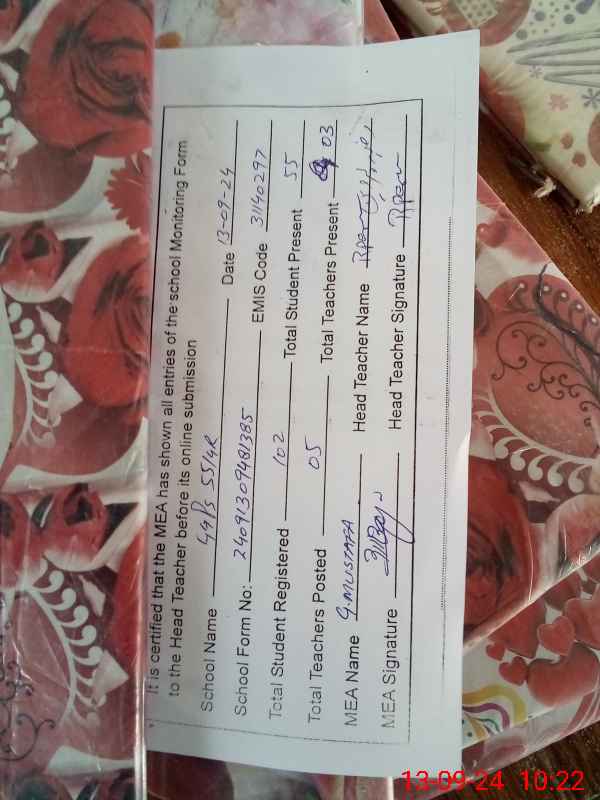 It is certified that the MEA has shown all entries of the school Monitoring Form
to the Head Teacher before its online submission
School Name GGPS 55/4R Date 13-09-24
School Form No: 24091309481385 EMIS Code 31140297
Total Student Registered 102 Total Student Present 55
Total Teachers Posted 05 Total Teachers Present 03
MEA Name G.MUSTAFA Head Teacher Name
MEA Signature Head Teacher Signature
13-09-24 10:22